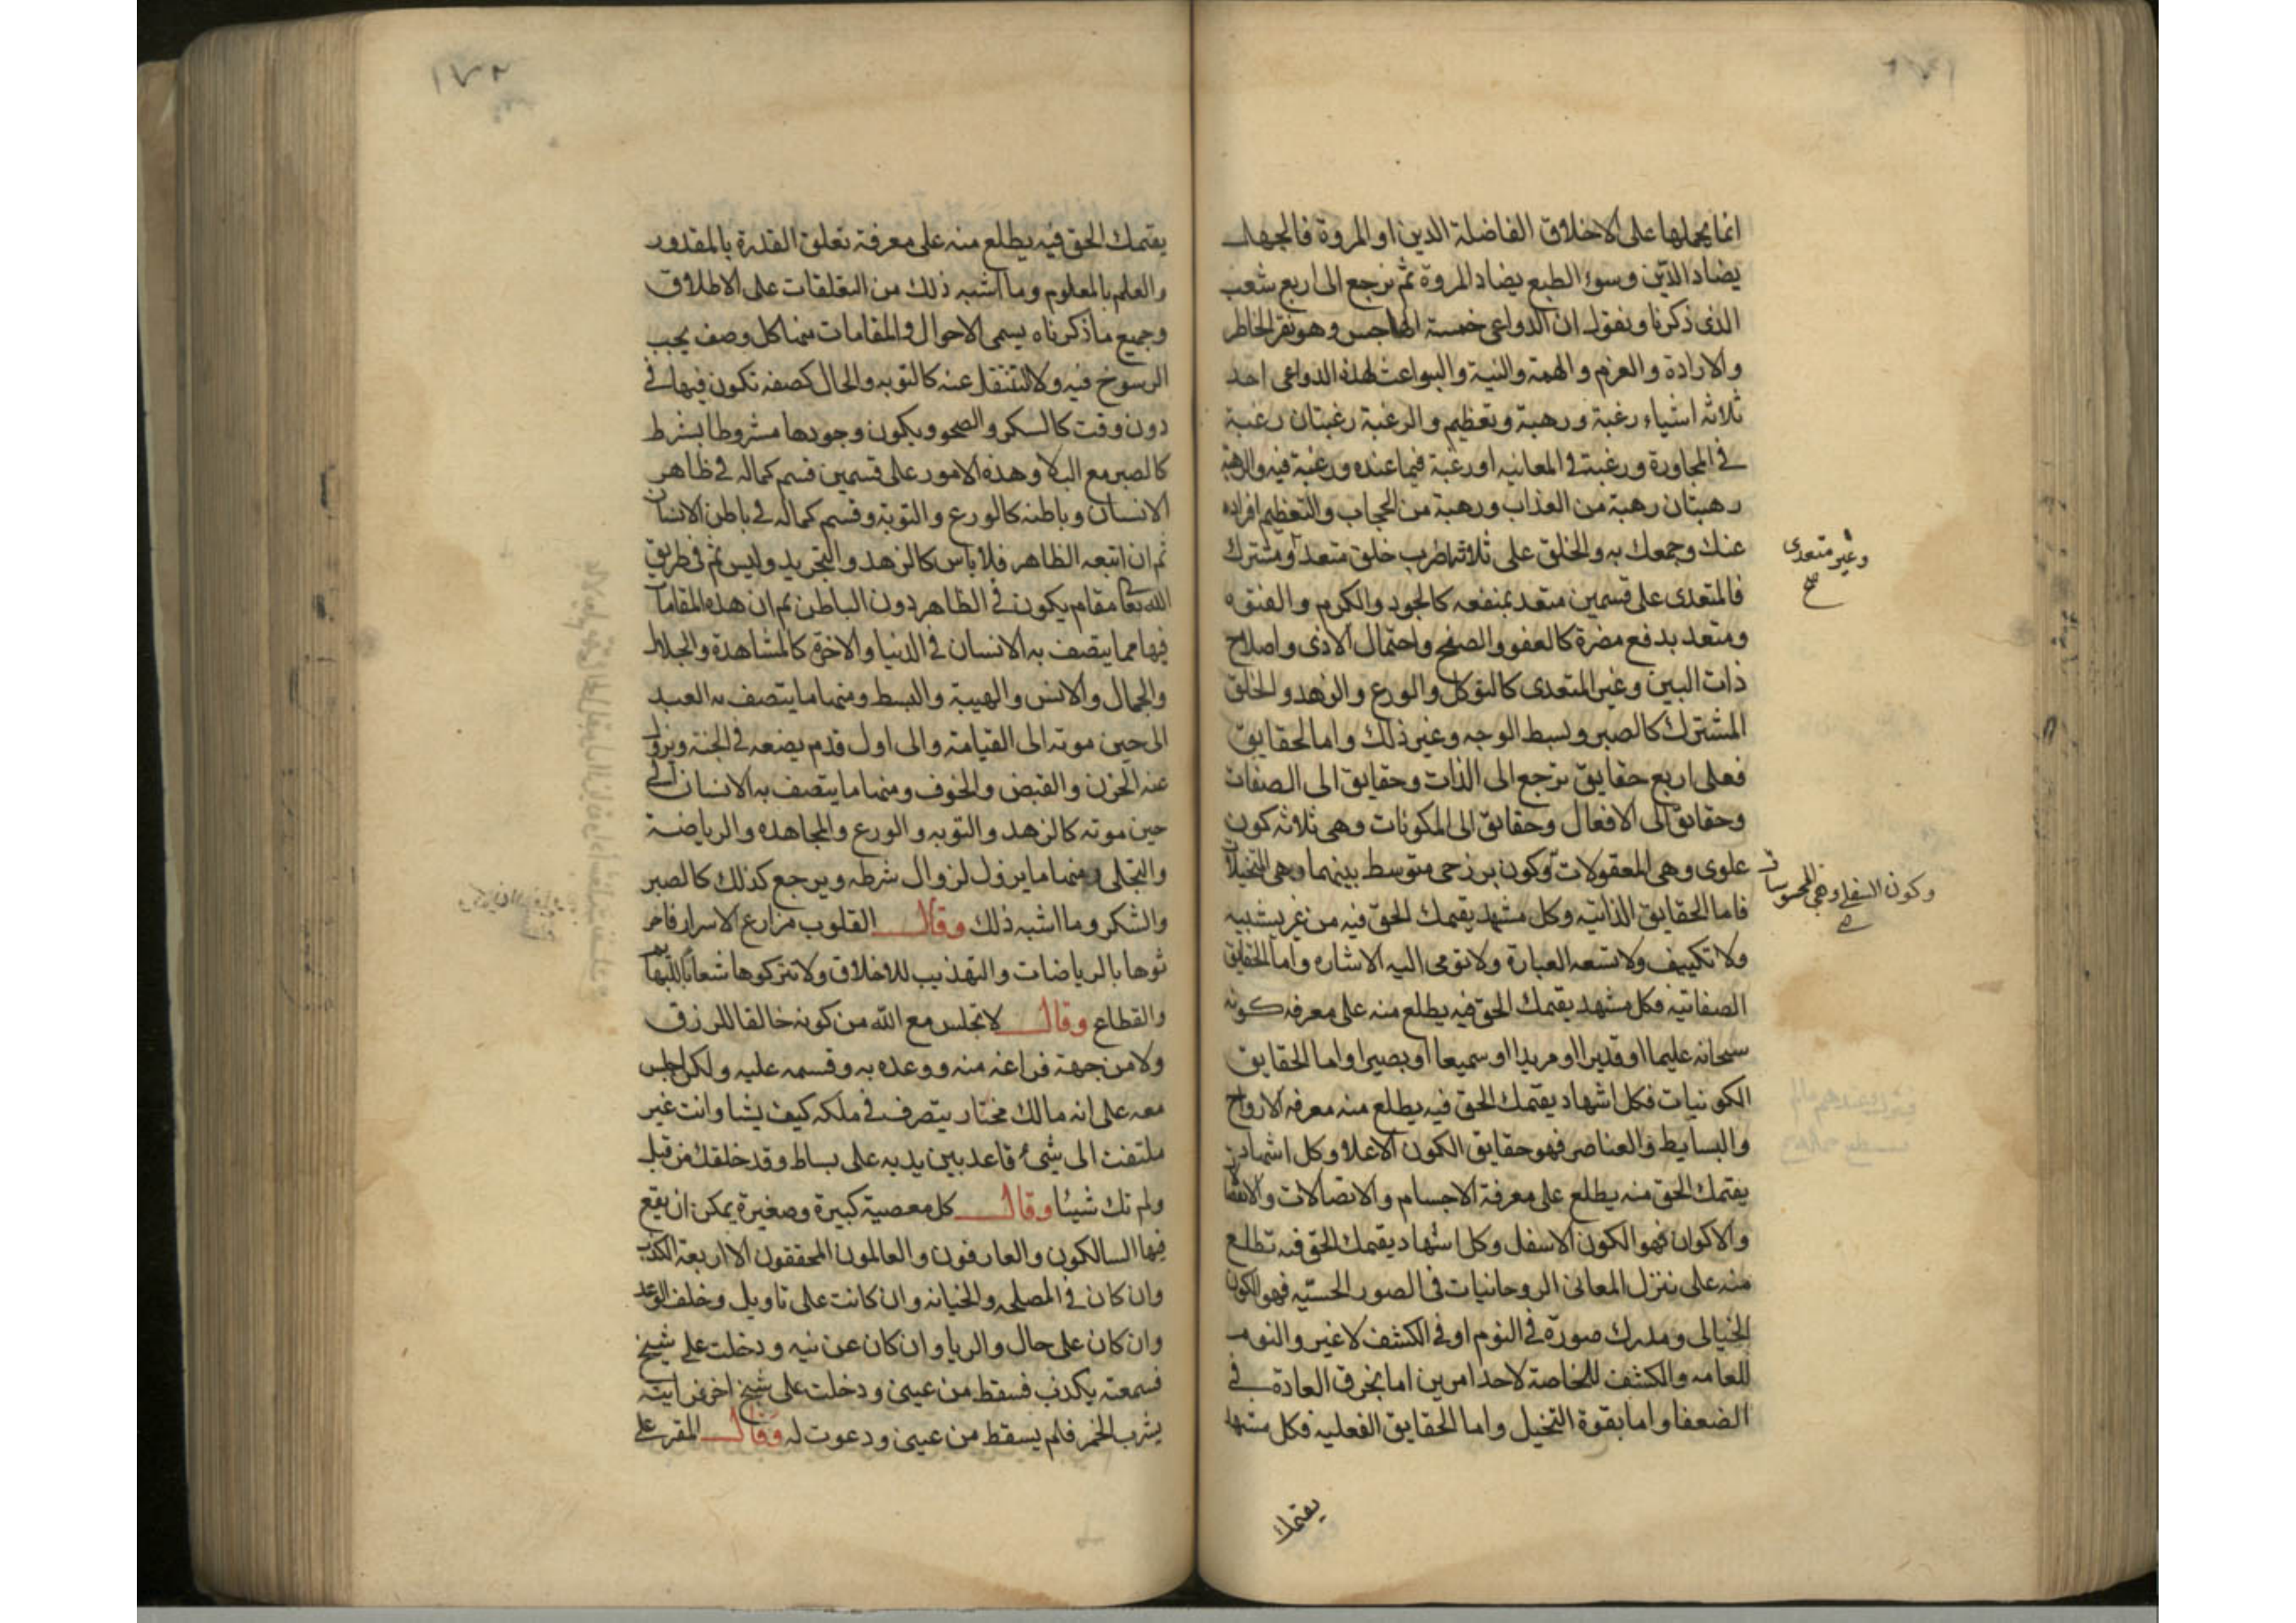 انما يحملها على الاخلاق الفاضلة الدين او المروة فالجهل
يضاد الدين وسوء الطبع يضاد المروة ثم نرجع الى اربع شعب
الذى ذكرنا ونقول ان الدواعى خمسة الهاجس وهو نقر الخاطر
والارادة والعزم والهمة والنية والبواعث لهذه الدواعى احد
ثلاثه اشياء رغبة ورهبة وتعظيم والرغبة رغبتان رغبة
فى المجاورة ورغبة فى المعاينه او رغبة فيما عنده ورغبة فيه والرهبة
رهبتان رهبة من العذاب ورهبة من الحجاب والتعظيم افراده
عنك وجمعك به والخلق على ثلاثة اضرب خلق متعد ومشترك
وغير متعدى
صح
فالمتعدى على قسمين متعد بمنفعه كالجود والكرم والفتوه
ومتعد بدفع مضرة كالعفو والصفح واحتمال الاذى واصلاح
ذات البين وغير المتعدى كالتوكل والورع والزهد والخلق
المشترك كالصبر وبسط الوجه وغير ذلك واما الحقايق
فعلى اربع حقايق ترجع الى الذات وحقايق الى الصفات
وحقايق الى الافعال وحقايق الى المكونات وهى ثلاثه كون
علوى وهى المعقولات وكون برزحى متوسط بينهما وهى المتخيلات
وكون السفلى وهى المحسوسات
فاما الحقايق الذاتيه وكل مشهد يقيمك الحق فيه من غير تشبيه
ولا تكييف ولا تسعه العبارة ولا تومى اليه الاشاره واما الحقايق
الصفاتيه فكل مشهد يقيمك الحق فيه يطلع منه على معرفه كونه
سبحانه عليما او قديرا او مريدا او سميعا او بصيرا واما الحقايق
الكونيات فكل اشهاد يقيمك الحق فيه يطلع منه معرفه الارواح
والبسايط والعناصر فهو حقايق الكون الاعلا وكل اشهاد
يقيمك الحق منه يطلع على معرفة الاجسام والاتصالات والانفصا
والاكوان فهو الكون الاسفل وكل اشهاد يقيمك الحق فيه تطلع
منه على تنزل المعانى الروحانيات فى الصور الحسّيه فهو الكون
الخيالى ومدرك صورة فى النوم او فى الكشف لا غير والنوم
للعامه والكشف للخاصة لاحد امرين اما بخرق العادة فى
الضعفا واما بقوة التخيل واما الحقايق الفعليه فكل مشهد
يقيمك
١٧٢
يقيمك الحق فيه يطلع منه على معرفة تعلق القدرة بالمقدور
والعلم بالمعلوم وما اشبه ذلك من التعلقات على الاطلاق
وجميع ما ذكرناه يسمى الاحوال والمقامات منها كل وصف يجب
الرسوخ فيه ولا التنقل عنه كالتوبه والحال كصفه تكون فيها فى
دون وقت كالسكر والصحو ويكون وجودها مشروطا بشرط
كالصبر مع البلا وهذه الامور على قسمين قسم كماله فى ظاهر
الانسان وباطنه كالورع والتوبة وقسم كماله فى باطن الانسان
ثم ان اتبعه الظاهر فلا باس كالزهد والتجريد وليس ثم فى طريق
الله تعا مقام يكون فى الظاهر دون الباطن ثم ان هذه المقامات
فيها مما يتصف به الانسان فى الدنيا والاخرة كالمشاهدة والجلال
والجمال والانس والهيبة والبسط ومنها ما يتصف به العبد
الى حين موته الى القيامة والى اول قدم يضعه فى الجنة ويزول
عنه الحزن والقبض والخوف ومنها ما يتصف به الانسان الى
حين موته كالزهد والتوبه والورع والمجاهده والرياضة
والتجلى ومنها ما يزول لزوال شرطه ويرجع كذلك كالصبر
والشكر وما اشبه ذلك وقال القلوب مزارع الاسرار فاحر
ثوها بالرياضات والتهذيب للاخلاق ولا تتركوها شعابا للبهايم
والقطاع وقال لا تجلس مع الله من كونه خالقا للرزق
ولا من جهة فراغه منه ووعده به وقسمه عليه ولكن اجلس
معه على انه مالك مختار يتصرف فى ملكه كيف يشا وانت غير
ملتفت الى شئ قاعد بين يديه على بساط وقد خلقتك من قبل
ولم تك شيئا وقال كل معصية كبيرة وصغيرة يمكن ان يقع
فيها السالكون والعارفون والعالمون المحققون الا اربعة الكذب
وان كان فى المصلحه والخيانه وان كانت على تاويل وخلف الوعد
وان كان على حال والريا وان كان عن نيه ودخلت على شيخ
فسمعته يكذب فسقط من عينى ودخلت على شيخ اخر فرايته
يشرب الخمر فلم يسقط من عينى ودعوت له وقال المقر على